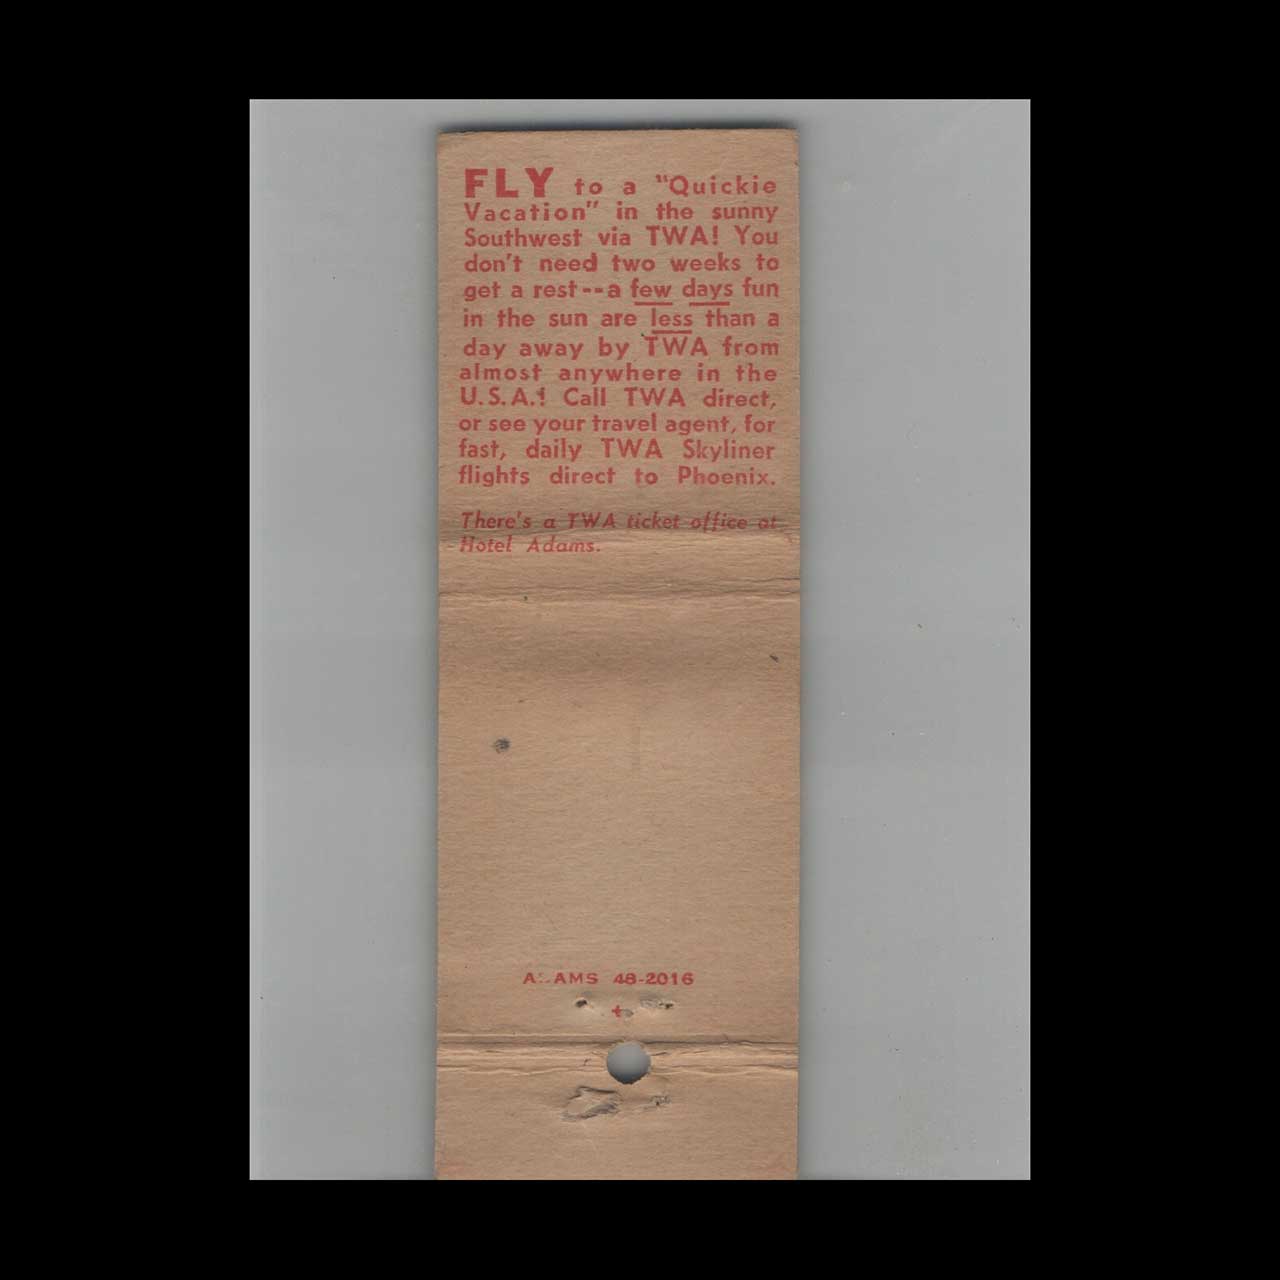 FLY to a "Quickie
Vacation" in the sunny
Southwest via TWA! You
don't need two weeks to
get a rest--a few days fun
in the sun are less than a
day away by TWA from
almost anywhere in the
U.S.A.! Call TWA direct,
or see your travel agent, for
fast, daily TWA Skyliner
flights direct to Phoenix.
There's a TWA ticket office at
Hotel Adams.
48-2016